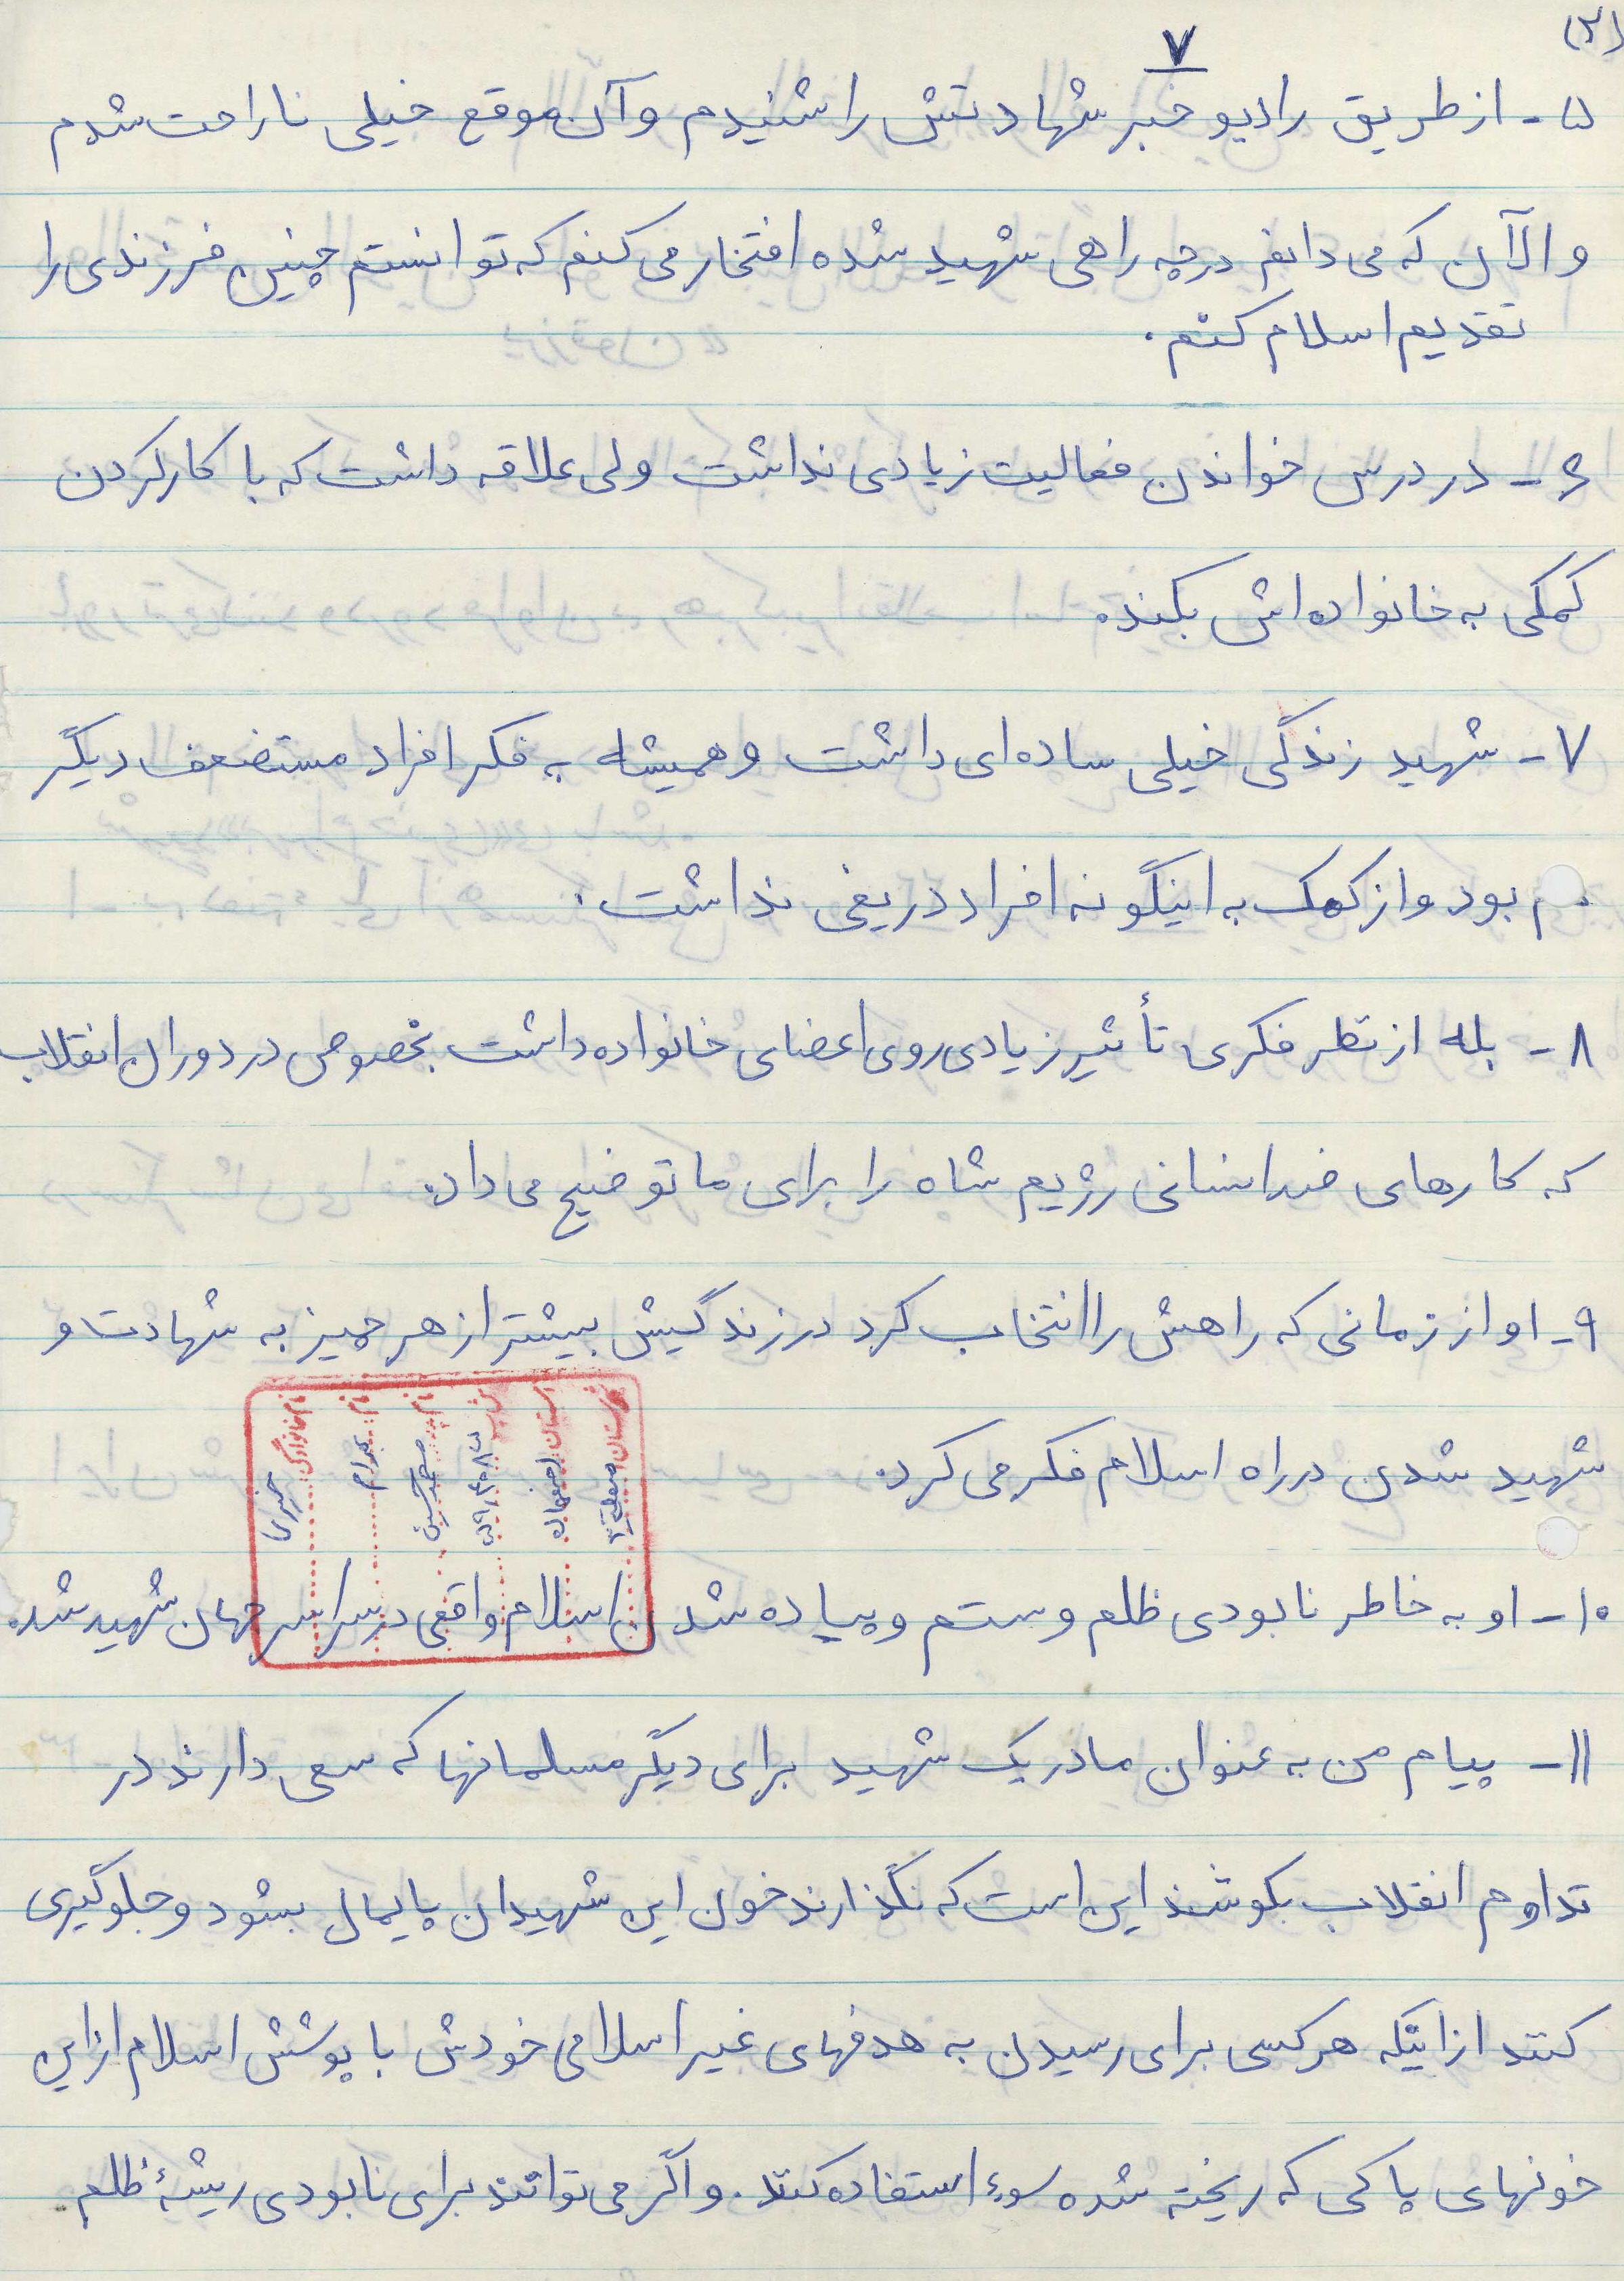 (۲)
۷
۵- از طریق رادیو خبر شهادتش را شنیدم و آن موقع خیلی ناراحت شدم
و الآن که می دانم در چه راهی شهید شده افتخار می کنم که توانستم چنین فرزندی را
تقدیم اسلام کنم.
۶- در درس خواندن فعالیت زیادی نداشت ولی علاقه داشت که با کار کردن
کمکی به خانواده اش بکند.
۷- شهید زندگی خیلی ساده ای داشت و همیشه به فکر افراد مستضعف دیگر
هم بود و از کمک به اینگونه افراد دریغی نداشت.
۸- بله از نظر فکری تأثیر زیادی روی اعضای خانواده داشت بخصوص در دوران انقلاب
که کارهای ضد انسانی رژیم شاه را برای ما توضیح می داد.
۹- او از زمانی که راهش را انتخاب کرد در زندگیش بیشتر از هر چیز به شهادت و
شهید شدن در راه اسلام فکر می کرد.
شهرستان
استان اصفهان
نام پدر محمدحسین
نام بهرام
نام خانوادگی
۱۰- او به خاطر نابودی ظلم و ستم و پیاده شدن اسلام واقعی در سراسر جهان شهید شد.
۱۱- پیام من به عنوان مادر یک شهید برای دیگر مسلمانها که سعی دارند در
تداوم انقلاب بکوشند این است که نگذارند خون این شهیدان پایمال بشود و جلوگیری
کنند از اینکه هر کسی برای رسیدن به هدفهای غیر اسلامی خودش با پوشش اسلام از این
خونهای پاکی که ریخته شده سوء استفاده کند. و اگر می توانند برای نابودی ریشهٔ ظلم